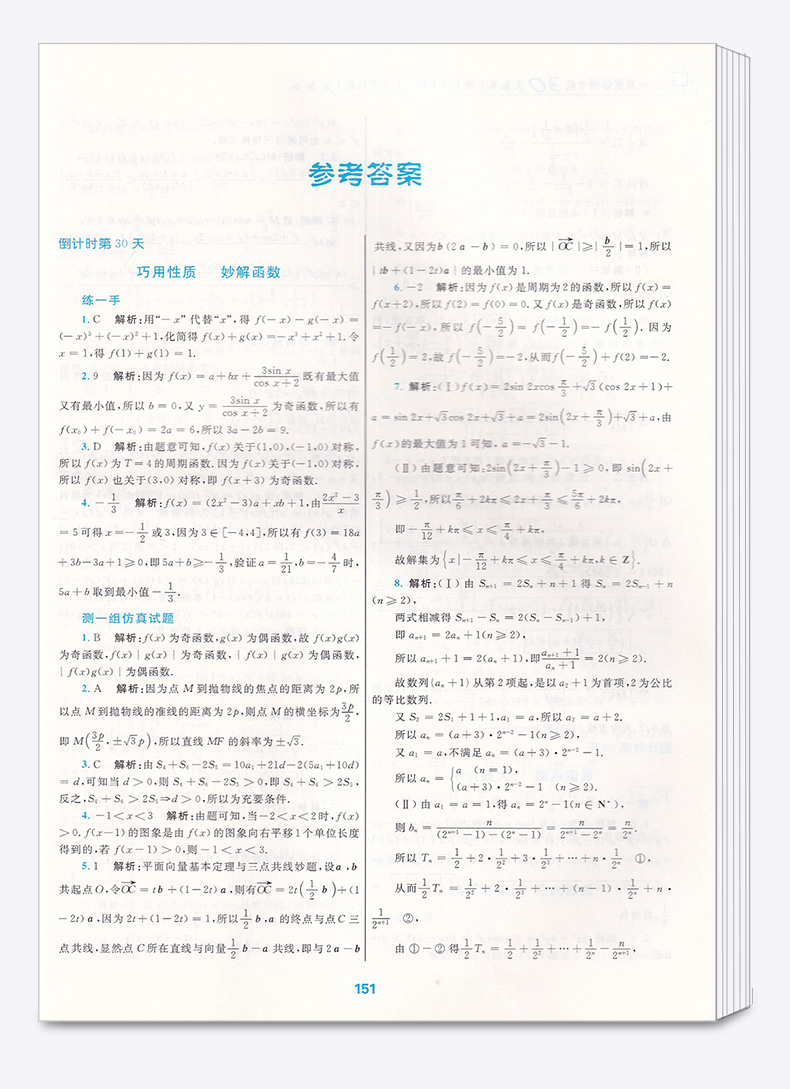 参考答案
倒计时第 30 天
巧用性质 妙解函数
练一手
1. C 解析:用“－x”代替“x”,得 f(－x)－g(－x)＝
(－x)³＋(－x)²＋1,化简得 f(x)＋g(x)＝－x³＋x²＋1. 令
x＝1,得 f(1)＋g(1)＝1.
2. 9 解析:因为 f(x)＝a＋bx＋3sin x/(cos x＋2) 既有最大值
又有最小值,所以 b＝0,又 y＝3sin x/(cos x＋2) 为奇函数,所以有
f(x₀)＋f(－x₀)＝2a＝6,所以 3a－2b＝9.
3. D 解析:由题意可知,f(x)关于(1,0),(－1,0)对称,
所以 f(x)为 T＝4 的周期函数. 因为 f(x)关于(－1,0)对称,
所以 f(x)也关于(3,0)对称,即 f(x＋3)为奇函数.
4. －1/3 解析:f(x)＝(2x²－3)a＋xb＋1,由(2x²－3)/x
＝5 可得 x＝－1/2 或 3,因为 3∈[－4,4],所以有 f(3)＝18a
＋3b－3a＋1≥0,即 5a＋b≥－1/3,验证 a＝1/21,b＝－4/7 时,
5a＋b 取到最小值－1/3.
测一组仿真试题
1. B 解析:f(x)为奇函数,g(x)为偶函数,故 f(x)g(x)
为奇函数,f(x)|g(x)|为奇函数,|f(x)|g(x)为偶函数,
|f(x)g(x)|为偶函数.
2. A 解析:因为点 M 到抛物线的焦点的距离为 2p,所
以点 M 到抛物线的准线的距离为 2p,则点 M 的横坐标为3p/2,
即 M(3p/2,±√3p),所以直线 MF 的斜率为±√3.
3. C 解析:由 S₄＋S₆－2S₅＝10a₁＋21d－2(5a₁＋10d)
＝d,可知当 d＞0,则 S₄＋S₆－2S₅＞0,即 S₄＋S₆＞2S₅,
反之,S₄＋S₆＞2S₅⇒d＞0,所以为充要条件.
4. －1＜x＜3 解析:由题可知,当－2＜x＜2 时,f(x)
＞0. f(x－1)的图象是由 f(x)的图象向右平移 1 个单位长度
得到的,若 f(x－1)＞0,则－1＜x＜3.
5. 1 解析:平面向量基本定理与三点共线妙题,设a,b
共起点 O,令OC→＝tb＋(1－2t)a,则有OC→＝2t(1/2 b)＋(1
－2t)a,因为 2t＋(1－2t)＝1,所以1/2 b,a 的终点与点 C 三
点共线,显然点 C 所在直线与向量1/2 b－a 共线,即与 2a－b
共线,又因为b(2a－b)＝0,所以|OC→|≥|b/2|＝1,所以
|tb＋(1－2t)a|的最小值为 1.
6. －2 解析:因为 f(x)是周期为 2 的函数,所以 f(x)＝
f(x＋2),所以 f(2)＝f(0)＝0. 又 f(x)是奇函数,所以 f(x)
＝－f(－x),所以 f(－5/2)＝f(－1/2)＝－f(1/2). 因为
f(1/2)＝2,故 f(－5/2)＝－2,从而f(－5/2)＋f(2)＝－2.
7. 解析:(Ⅰ)f(x)＝2sin 2xcos π/3＋√3(cos 2x＋1)＋
a＝sin 2x＋√3cos 2x＋√3＋a＝2sin(2x＋π/3)＋√3＋a,由
f(x)的最大值为 1 可知,a＝－√3－1.
(Ⅱ)由题意可知:2sin(2x＋π/3)－1≥0,即 sin(2x＋
π/3)≥1/2,所以π/6＋2kπ≤2x＋π/3≤5π/6＋2kπ,
即－π/12＋kπ≤x≤π/4＋kπ,
故解集为{x|－π/12＋kπ≤x≤π/4＋kπ,k∈Z}.
8. 解析:(Ⅰ)由 Sₙ₊₁＝2Sₙ＋n＋1 得 Sₙ＝2Sₙ₋₁＋n
(n≥2),
两式相减得 Sₙ₊₁－Sₙ＝2(Sₙ－Sₙ₋₁)＋1,
即 aₙ₊₁＝2aₙ＋1(n≥2),
所以 aₙ₊₁＋1＝2(aₙ＋1),即(aₙ₊₁＋1)/(aₙ＋1)＝2(n≥2).
故数列{aₙ＋1}从第 2 项起,是以 a₂＋1 为首项,2 为公比
的等比数列.
又 S₂＝2S₁＋1＋1,a₁＝a,所以 a₂＝a＋2.
所以 aₙ＝(a＋3)·2ⁿ⁻²－1(n≥2),
又 a₁＝a,不满足 aₙ＝(a＋3)·2ⁿ⁻²－1.
所以 aₙ＝{a (n＝1),
(a＋3)·2ⁿ⁻²－1 (n≥2).
(Ⅱ)由 a₁＝a＝1,得 aₙ＝2ⁿ－1(n∈N*),
则 bₙ＝n/((2ⁿ⁺¹－1)－(2ⁿ－1))＝n/(2ⁿ⁺¹－2ⁿ)＝n/2ⁿ.
所以 Tₙ＝1/2＋2·1/2²＋3·1/2³＋…＋n·1/2ⁿ ①,
从而1/2 Tₙ＝1/2²＋2·1/2³＋…＋(n－1)·1/2ⁿ＋n·
1/2ⁿ⁺¹ ②,
由①－②得1/2 Tₙ＝1/2＋1/2²＋…＋1/2ⁿ－n/2ⁿ⁺¹,
151